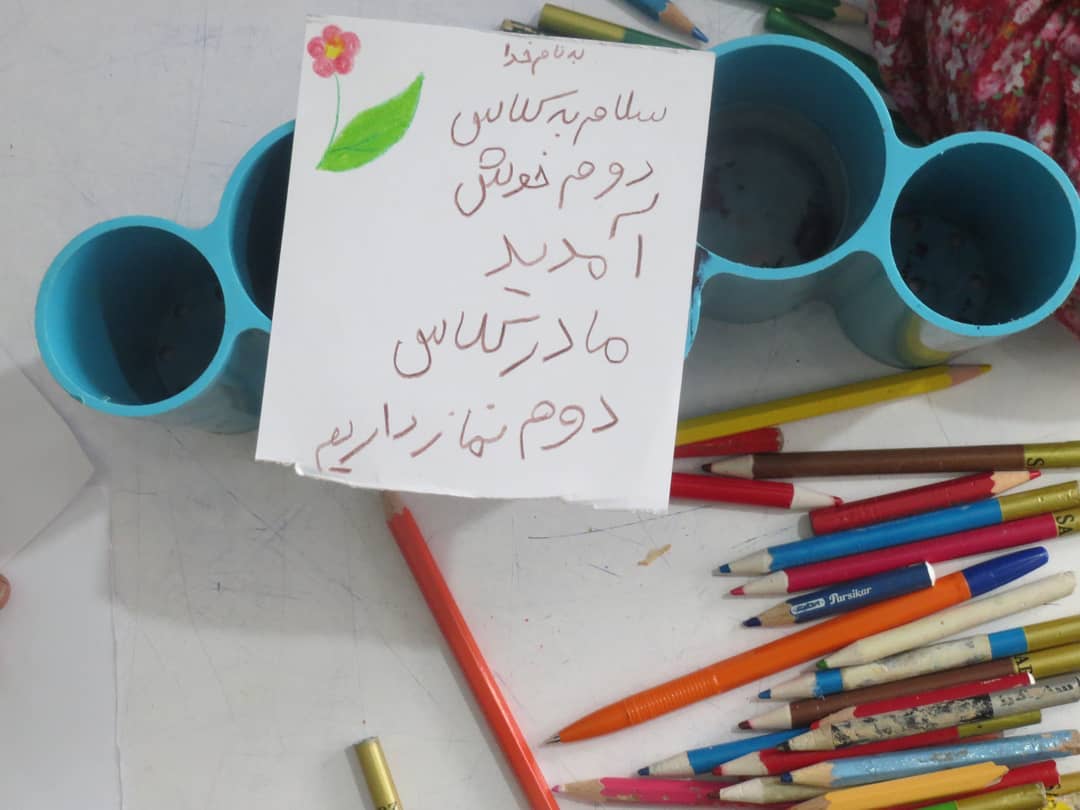 به نام خدا
سلام به کلاس
دوم خوش
آمدید
ما در کلاس
دوم نماز داریم
Parsikar